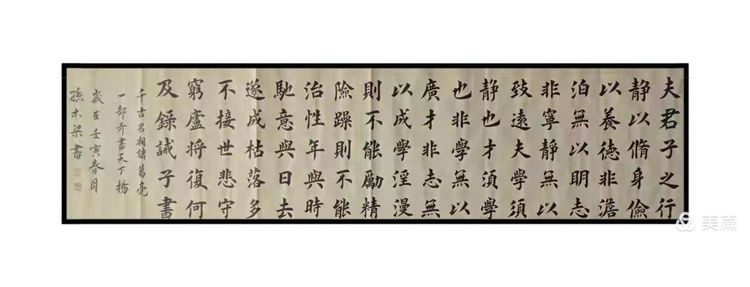 夫君子之行
静以脩身儉
以養德非澹
泊無以明志
非寧静無以
致遠夫學須
静也才須學
也非學無以
廣才非志無
以成學滛漫
則不能勵精
險躁則不能
治性年與時
馳意與日去
遂成枯落多
不接世悲守
窮廬将復何
及錄誡子書
千古名相諸葛亮
一部奇書天下揚
歲在壬寅春月
孫木梁書
美篇